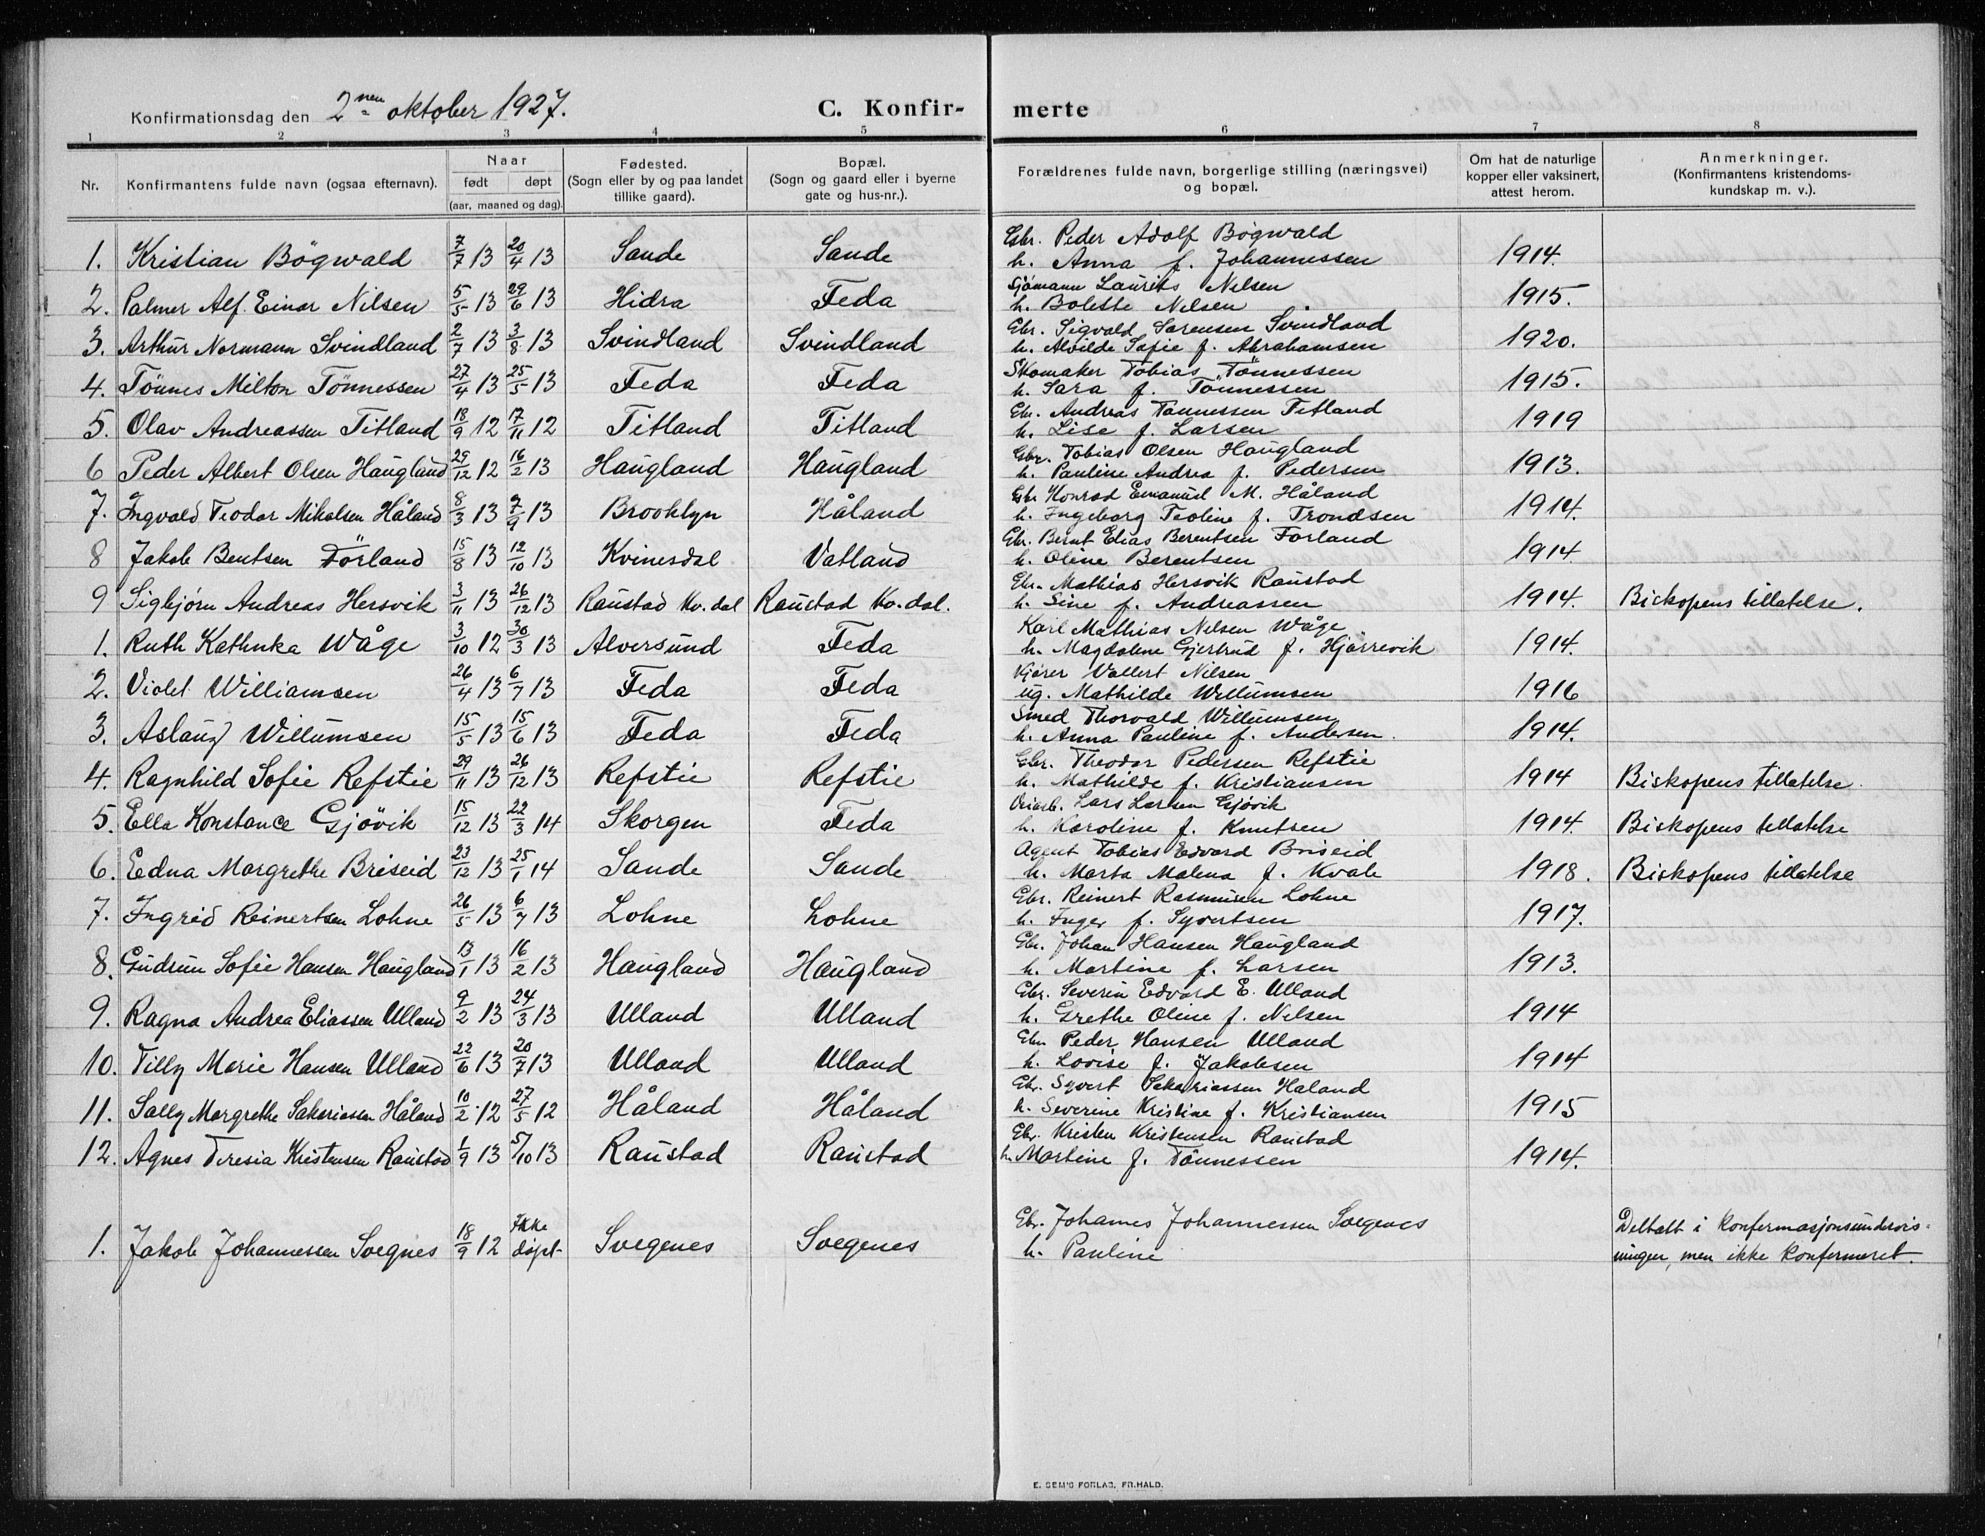 Konfirmationsdag den 2nen oktober 1927. C. Konfir- merte
1 2 3 4 5 6 7 8
Nr. Konfirmantens fulde navn (ogsaa efternavn). Naar født døpt (aar, maaned og dag). Fødested. (Sogn eller by og paa landet tillike gaard). Bopæl. (Sogn og gaard eller i byerne gate og hus-nr.). Forældrenes fulde navn, borgerlige stilling (næringsvei) og bopæl. Om hat de naturlige kopper eller vaksinert, attest herom. Anmerkninger. (Konfirmantens kristendoms- kundskap m. v.).
1. Kristian Bögwald 7/7 13 20/4 13 Sande Sande Gbr. Peder Adolf Bögwald
h. Anna f. Johannessen 1914.
2. Palmer Alf. Einar Nilsen 5/5 13 29/6 13 Hidra Feda Sjømann Laurits Nilsen
h. Bolette Nilsen 1915.
3. Arthur Normann Svindland 2/7 13 3/8 13 Svindland Svindland Gbr. Sigvald Sørensen Svindland
h. Alvilde Sofie f. Abrahamsen 1920.
4. Tönnes Milton Tönnessen 27/4 13 25/5 13 Feda Feda Skomaker Tobias Tönnessen
h. Sara f. Tönnessen 1915.
5. Olav Andreassen Titland 18/9 12 17/11 12 Titland Titland Gbr. Andreas Tönnessen Titland
h. Lise f. Larsen 1919
6 Peder Albert Olsen Haugland 29/12 12 16/2 13 Haugland Haugland Gbr. Tobias Olsen Haugland
h. Pauline Andrea f. Pedersen 1913.
7. Ingvald Teodor Mikalsen Håland 8/3 13 7/9 13 Brooklyn Håland Gbr Konrad Emanuel M. Håland
h. Ingeborg Teoline f. Trondsen 1914.
8 Jakob Bentsen Förland 15/8 13 12/10 13 Kvinesdal Vatland Gbr. Bernt Elias Berentsen Förland
h. Oline Berentsen 1914.
9 Sigbjørn Andreas Hersvik 3/11 13 26/12 13 Raustad Kv.dal Raustad Kv.dal. Gbr. Mathias Hersvik Raustad
h. Sine f. Andreassen 1914. Biskopens tillatelse.
1. Ruth Kathinka Wåge 3/10 12 30/3 13 Alversund Feda Karl Mathias Nilsen Wåge
h. Magdalene Gjertrud f. Hjørrevik 1914.
2. Violet Williamsen 26/4 13 6/7 13 Feda Feda Kjører Vallert Nilsen
ug. Mathilde Willumsen 1916
3. Aslaug Willumsen 15/5 13 15/6 13 Feda Feda Smed Thorvald Willumsen
h. Anna Pauline f. Andersen. 1914.
4. Ragnhild Sofie Refstie 29/11 13 26/12 13 Refstie Refstie Gbr. Theodor Pedersen Refstie
h. Mathilde f. Kristiansen 1914 Biskopens tillatelse.
5. Ella Konstance Gjövik 15/12 13 22/3 14 Skorgen Feda Lars Larsen Gjövik
h. Karoline f. Knutsen 1914. Biskopens tillatelse
6. Edna Margrethe Briseid 23/12 13 25/1 14 Sande Sande Agent Tobias Edvard Briseid
h. Marta Malena f. Kvale 1918. Biskopens tillatelse
7. Ingrid Reinertsen Lohne 26/5 13 6/7 13 Lohne Lohne Gbr. Reinert Rasmusen Lohne
h. Inger f. Syvertsen 1917.
8. Gudrun Sofie Hansen Haugland 13/1 13 16/2 13 Haugland Haugland Gbr. Johan Hansen Haugland
h. Martine f. Larsen 1913.
9. Ragna Andrea Eliassen Ulland 9/2 13 24/3 13 Ulland Ulland Gbr. Severin Edvard E. Ulland
h. Grethe Oline f. Nilsen 1914
10. Tilly Marie Hansen Ulland 22/6 13 20/7 13 Ulland Ulland Gbr Peder Hansen Ulland
h. Lovise f. Jakobsen 1914
11. Sally Margrethe Sakariassen Håland 10/2 12 27/5 12 Håland Håland Gbr. Syvert Sakariassen Håland
h. Severine Kristine f. Kristiansen 1915
12. Agnes Teresia Kristensen Raustad 1/9 13 5/10 13 Raustad Raustad Gbr. Kristen Kristensen Raustad
h. Martine f. Tönnessen 1914.
1. Jakob Johannessen Svegnes 18/9 12 Ikke døpt Svegenes Svegenes Gbr. Johannes Johannessen Svegenes
h. Pauline Deltatt i konfermasjonsundervis-
ningen, men ikke konfermeret.
E. SEM'S FORLAG, FR.HALD.